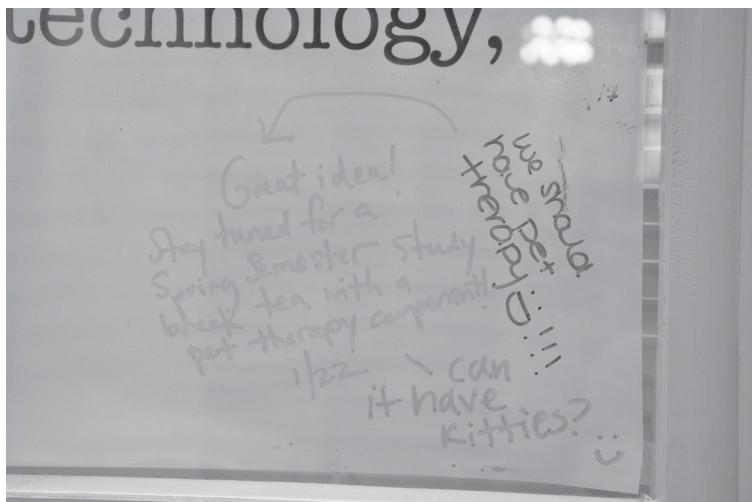 technology,
we should
have pet
therapy!!!
Great idea!
Stay tuned for a
Spring Semester study
break tea with a
pet therapy component!
1/22
can
it have
kitties? :)